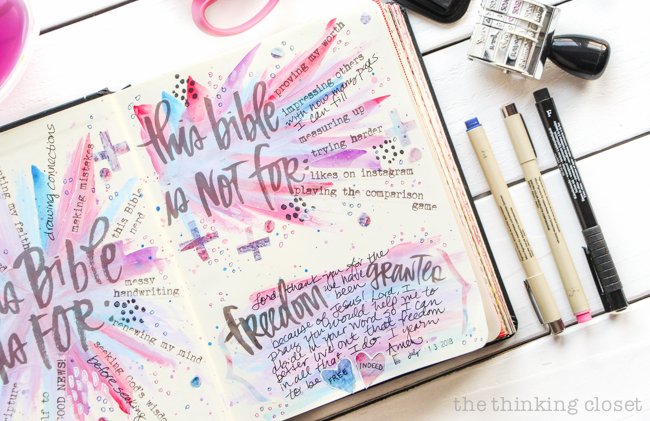 drawing connections
making mistakes
this Bible
nerd
my faith
THIS BIBLE
IS FOR
messy
handwriting
renewing my mind
seeking God's wisdom
before
GOOD NEWS!
this bible
is NOT FOR
proving my worth
impressing others
with how many pages
I can fill
measuring up
trying harder
likes on instagram
playing the comparison
game
freedom GRANTED
Lord, thank you for the
we have
been
because of Jesus! Lord, I
pray you would help me to
in your word so I can
better live out that freedom
in all that I do. I yearn
to be FREE INDEED Amen
13 2018
the thinking closet